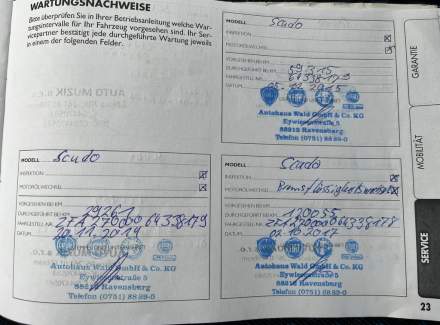 WARTUNGSNACHWEISE
Bitte überprüfen Sie in Ihrer Betriebsanleitung welche War-
tungsintervalle für Ihr Fahrzeug vorgesehen sind. Ihr Ser-
vicepartner bestätigt jede durchgeführte Wartung jeweils
in einem der folgenden Felder.
MODELL Scudo
INSPEKTION
MOTORÖLWECHSEL
VORGESEHEN BEI KM
DURCHGEFÜHRT BEI KM 59315
FAHRGESTELL-NR.
DATUM
Autohaus Wald GmbH & Co. KG
Eywiesenstraße 5
88212 Ravensburg
Telefon (0751) 88 89-0
MODELL Scudo
INSPEKTION
MOTORÖLWECHSEL
VORGESEHEN BEI KM
DURCHGEFÜHRT BEI KM 29261
FAHRGESTELL-NR.
DATUM 20.11.2014
Autohaus Wald GmbH & Co. KG
Eywiesenstraße 5
88212 Ravensburg
Telefon (0751) 88 89-0
MODELL Scudo
INSPEKTION
MOTORÖLWECHSEL
VORGESEHEN BEI KM
DURCHGEFÜHRT BEI KM 120055
FAHRGESTELL-NR.
DATUM 02.10.2017
Autohaus Wald GmbH & Co. KG
Eywiesenstraße 5
88212 Ravensburg
Telefon (0751) 88 89-0
GARANTIE
MOBILITÄT
SERVICE
23